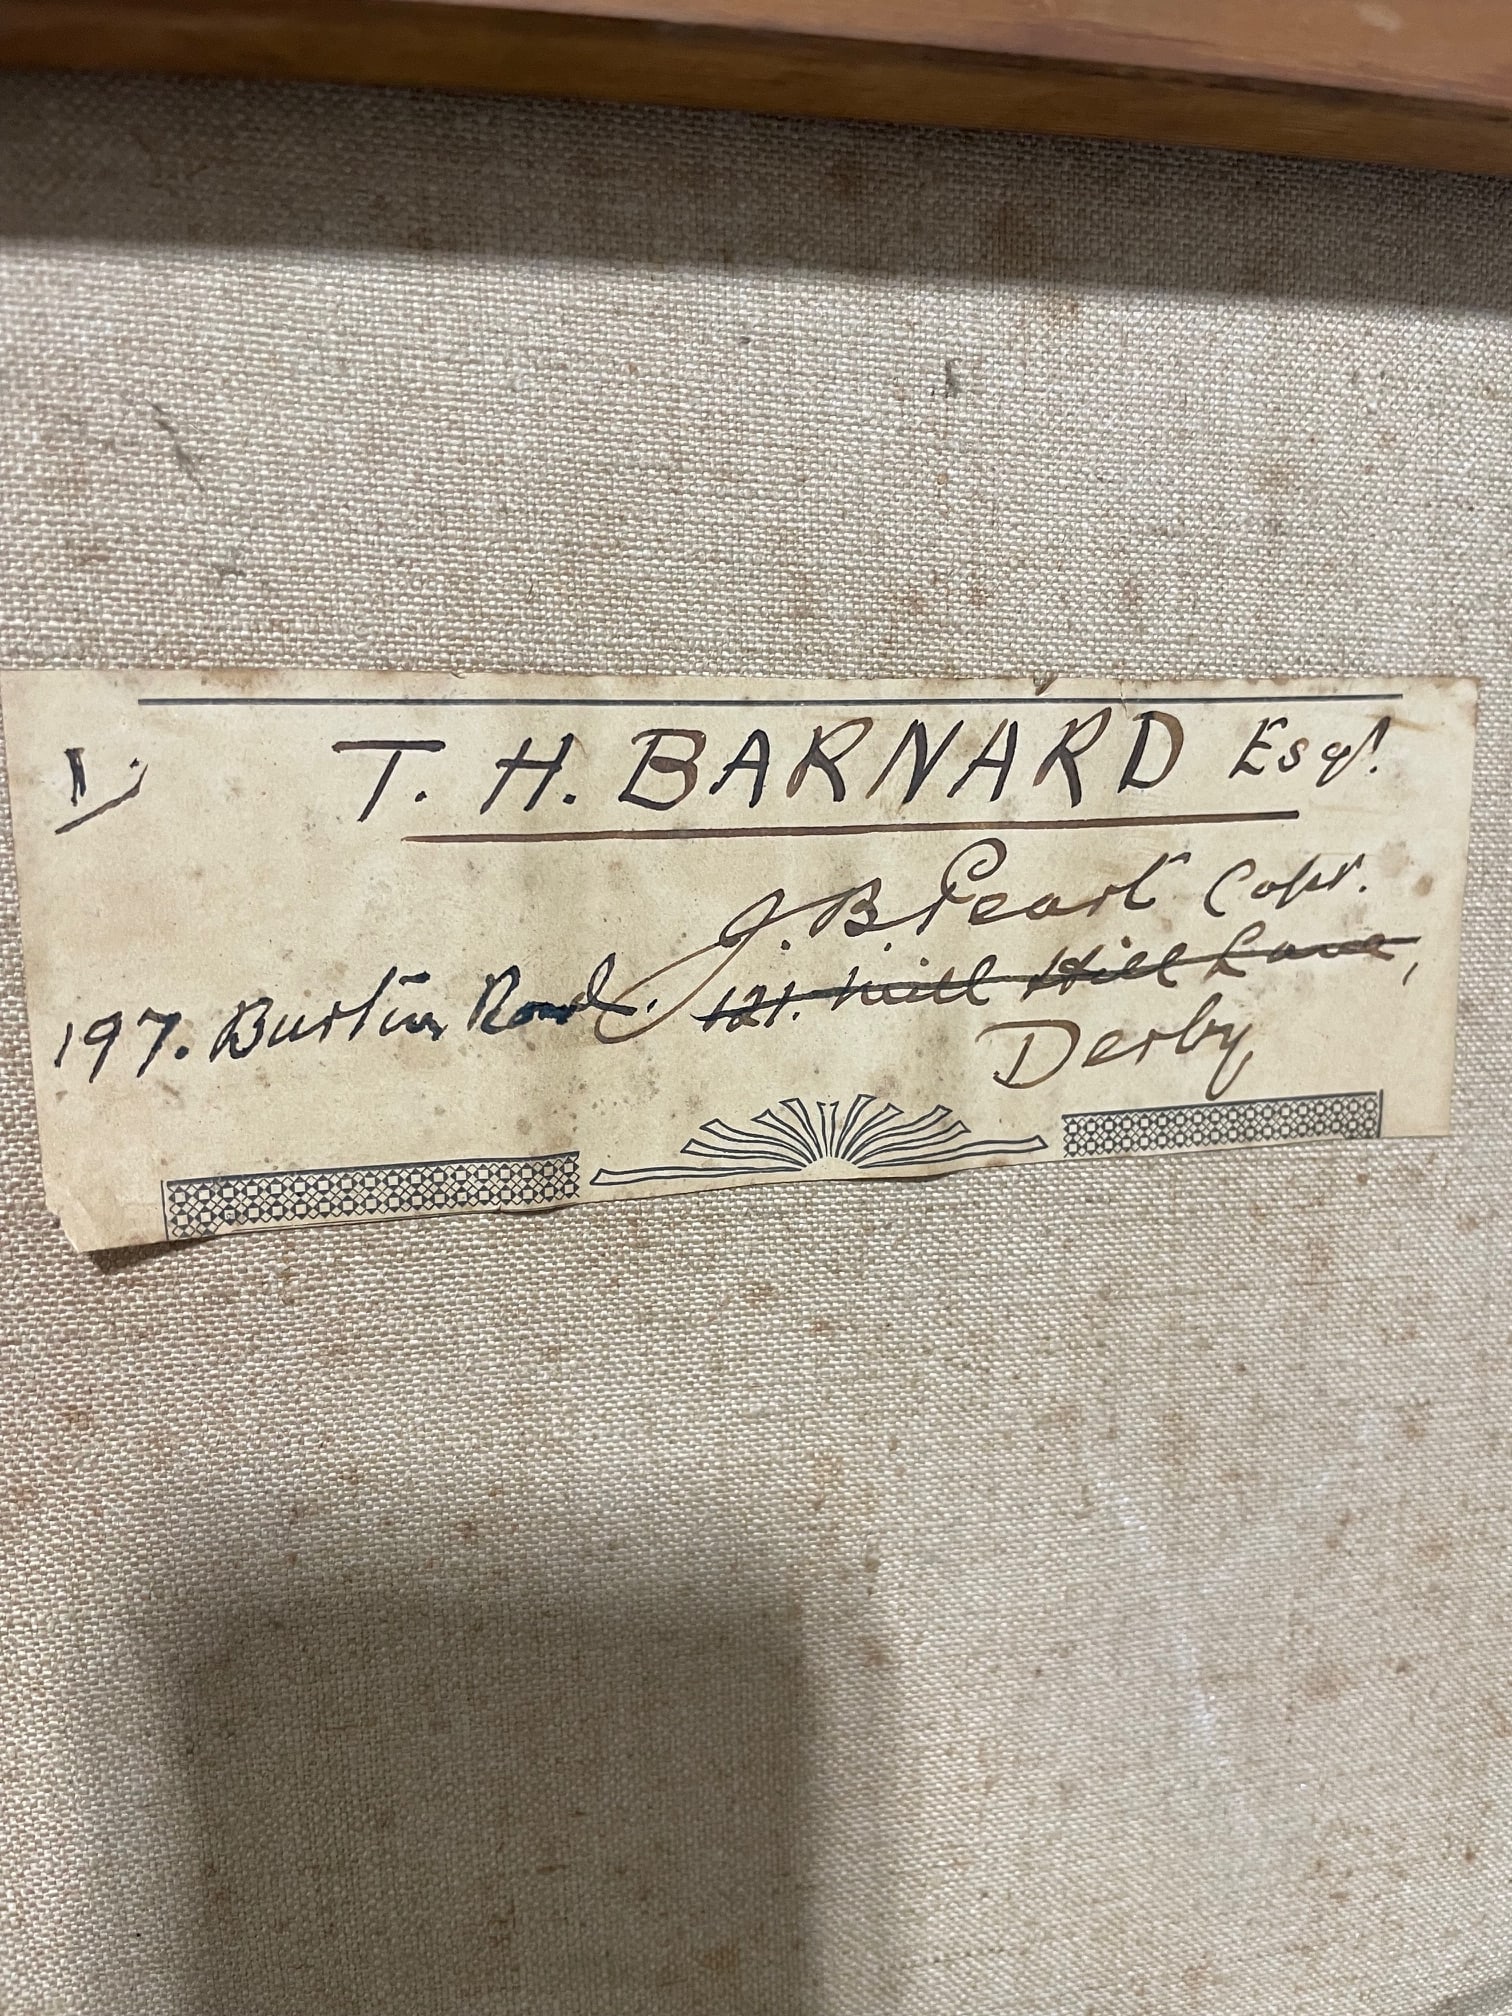 1/. T. H. BARNARD Esqr.
J. B. Pearl Capt.
197. Burton Road. 121. Mill Hill Lane,
Derby